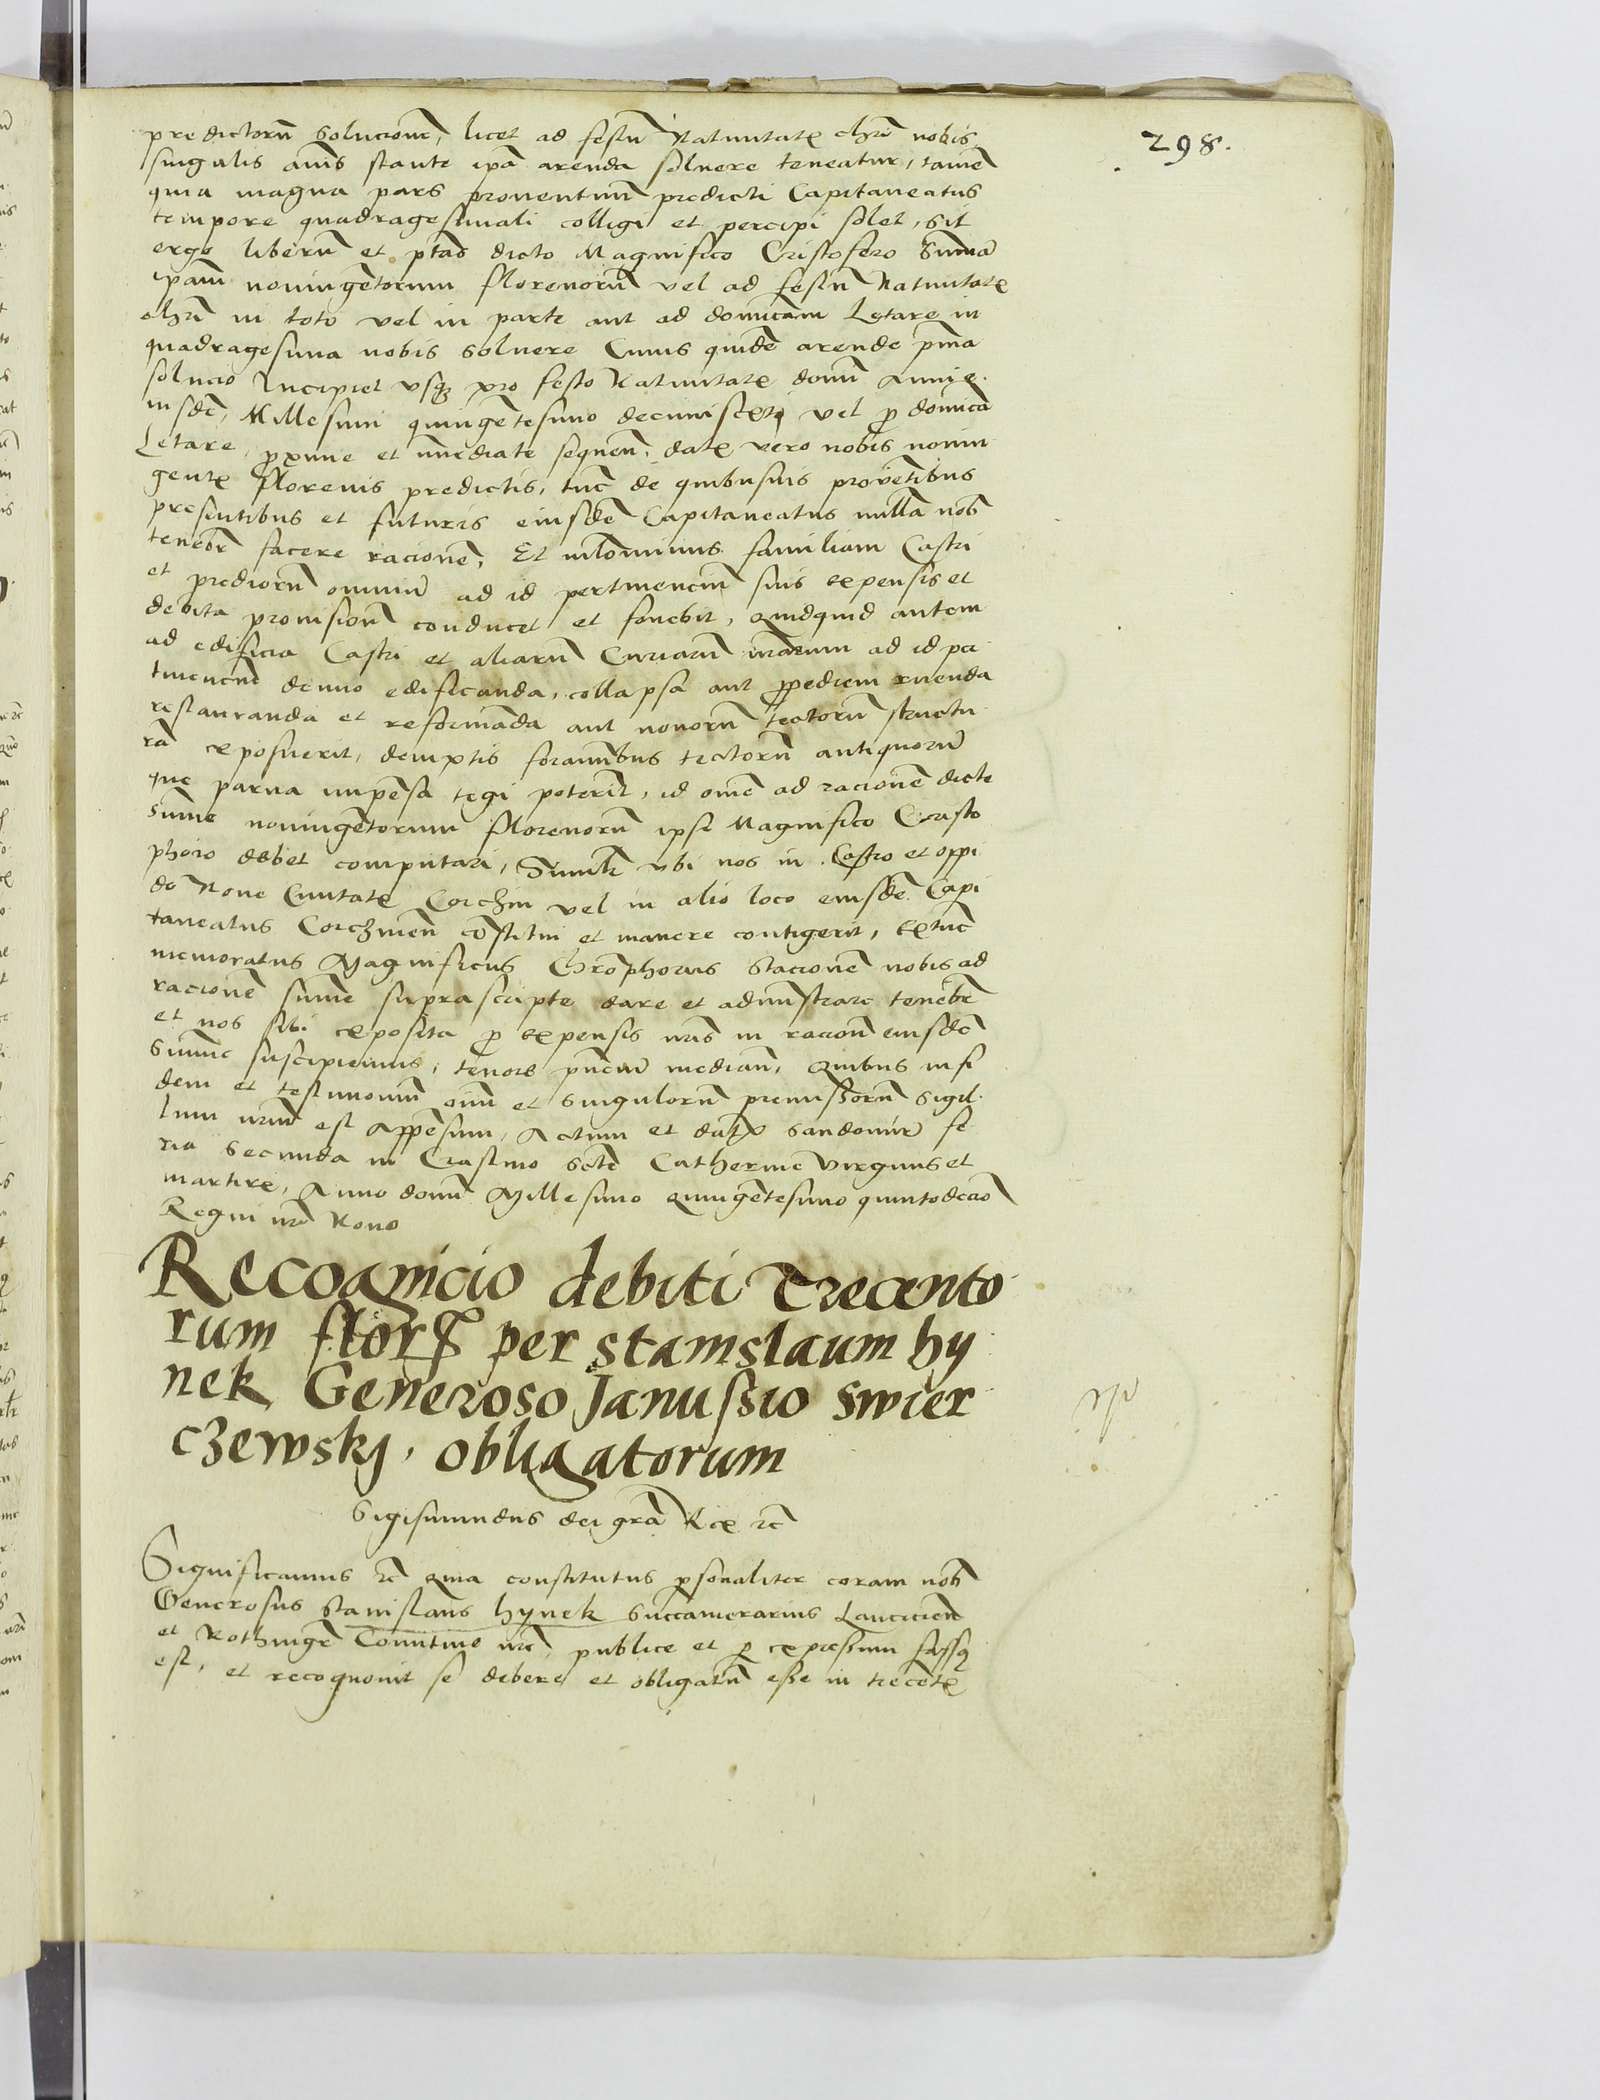 298.
predictorū Solucionē, licet ad festū Natiuitatꝭ chrī nobis
singulis añis stante ip̄a arenda soluere teneatur, tamē
quia magna pars prouentuum predicti Capitaneatus
tempore quadragesimali colligi et percipi solet, sit
ergo liberū et ptas dicto Magnifico Cristofero Summā
ipam noningētorum florenorū vel ad festū Natiuitatꝭ
chrī in toto vel in parte aut ad domīcam Letare in
quadragesima nobis soluere Cuius quidē arende pma
solucio Incipiet vsqꝫ pro festo Natiuitatꝭ domī Anni e
iusdē, Millesimi quingētesimo decimisexti vel ꝓ domīca
Letare, ꝓxime et imēdiate sequeñ. datꝭ vero nobis nonin
gentꝭ florenis predictis, tuc de quibusuis prouētibus
presentibus et futuris eiusdē Capitaneatus nullā nob̄
tenebr̄ facere racionē, Et nichlominus familiam Castri
et prediorū omniū ad id pertinenciū suis expensis et
debita prouisioñ conducet et fouebit, quidquid autem
ad edificia Castri et aliarū Curiarū nrarum ad id per
tinenciū denuo edificanda, collapsa aut ꝓpediem ruenda
restauranda et reformāda aut nouorū tectorū structu
rā exposuerit, demptis foraminibus tectorū antiquorū
que parua impēsa tegi poterīt, id omē ad racionē dicte
Sūme noningētorum florenorū ipsi Magnifico Cristo
phoro debet computari, Similr̄ vbi nos in Castro et oppi
do Noue Ciuitatꝭ Corchin vel in alio loco eiusdē Capi
taneatus Corczineñ cōstitui et manere contigerit, extūc
memoratus Magnificus Chrōphorus Stacionē nobis ad
racionē sūme suprascripte dare et administrare tenebr̄
et nos sibi exposita ꝓ expensis nris in racioñ eiusdē
Sūme suscipiemus, tenore pñciū mediañ. Quibus in fi
dem et testimoniū oiū et Singulorū premissorū Sigil
lum nrm̄ est Appēsum, Actum et datꝭ Sandomir̄ fe
ria Secunda in Crastino Sctē Catherine virginis et
martirꝭ, Anno domī Millesimo Quingētesimo quintodecīo
Regni nrī Nono
Recognicio debiti Trecento
rum florꝭ per Stanislaum hy
nek Generoso Janussio Swier
czewskj, obligatorum
Sigismundus dei grā Rex etc̄
Significamus etc̄ Quia constitutus ꝑsonaliter coram nob̄
Generosus Stanislaus hynek Succamerarius Lancicieñ
et Rothmgr̄ Comitiue nrē, publice et ꝑ expressum fassꝫ
est, et recognouit se debere et obligatū esse in trecētꝭ